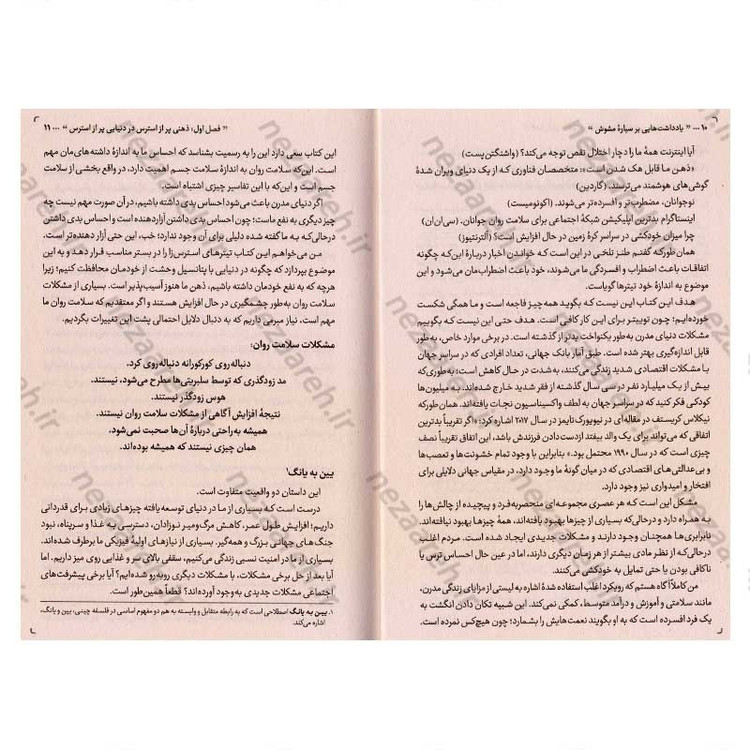 ۱۰ ... « یادداشت‌هایی بر سیارهٔ مشوش »
آیا اینترنت همهٔ ما را دچار اختلال نقص توجه می‌کند؟ (واشنگتن‌پست)
«ذهن ما قابل هک شدن است»: متخصصان فناوری که از یک دنیای ویران شدهٔ
گوشی‌های هوشمند می‌ترسند. (گاردین)
نوجوانان، مضطرب‌تر و افسرده‌تر می‌شوند. (اکونومیست)
اینستاگرام بدترین اپلیکیشن شبکهٔ اجتماعی برای سلامت روان جوانان. (سی‌ان‌ان)
چرا میزان خودکشی در سراسر کرهٔ زمین در حال افزایش است؟ (آلترنتیوز)
همان‌طور که گفتم طنز تلخی در این است که خواندن اخبار دربارهٔ این‌که چگونه
اتفاقات باعث اضطراب و افسردگی ما می‌شوند، خود باعث اضطراب‌مان می‌شود و این
موضوع به اندازهٔ خود تیترها گویاست.
هدف این کتاب این نیست که بگوید همه‌چیز فاجعه است و ما همگی شکست
خورده‌ایم؛ چون توییتر برای این کار کافی است. هدف حتی این نیست که بگوییم
مشکلات دنیای مدرن به‌طور یکنواخت بدتر از گذشته است. در برخی موارد خاص، به‌طور
قابل اندازه‌گیری بهتر شده است. طبق آمار بانک جهانی، تعداد افرادی که در سراسر جهان
با مشکلات اقتصادی شدید زندگی می‌کنند، به‌شدت در حال کاهش است؛ به‌طوری‌که
بیش از یک میلیارد نفر در سی سال گذشته از فقر شدید خارج شده‌اند. به میلیون‌ها
کودکی فکر کنید که در سراسر جهان به لطف واکسیناسیون نجات یافته‌اند. همان‌طور که
نیکلاس کریستف در مقاله‌ای در نیویورک‌تایمز در سال ۲۰۱۷ اشاره کرد: «اگر تقریباً بدترین
اتفاقی که می‌تواند برای یک والد بیفتد از دست دادن فرزندش باشد، این اتفاق تقریباً نصف
چیزی است که در سال ۱۹۹۰ محتمل بود.» بنابراین با وجود تمام خشونت‌ها و تعصب‌ها
و بی‌عدالتی‌های اقتصادی که در میان گونهٔ ما وجود دارد، در مقیاس جهانی دلایلی برای
افتخار و امیدواری نیز وجود دارد.
مشکل این است که هر عصری مجموعه‌ای منحصربه‌فرد و پیچیده از چالش‌ها را
به همراه دارد و درحالی‌که بسیاری از چیزها بهبود یافته‌اند، همهٔ چیزها بهبود نیافته‌اند.
نابرابری‌ها همچنان وجود دارند و مشکلات جدیدی ایجاد شده است. مردم اغلب
درحالی‌که از نظر مادی بیشتر از هر زمان دیگری دارند، اما در عین حال احساس ترس یا
ناکافی بودن یا حتی تمایل به خودکشی می‌کنند.
من کاملاً آگاه هستم که رویکرد اغلب استفاده شدهٔ اشاره به لیستی از مزایای زندگی مدرن،
مانند سلامتی و آموزش و درآمد متوسط، کمکی نمی‌کند. این شبیه تکان دادن انگشت به
یک فرد افسرده است که به او بگویند نعمت‌هایش را بشمارد؛ چون هیچ‌کس نمرده است.
« فصل اول: ذهنی پر از استرس در دنیایی پر از استرس » ... ۱۱
این کتاب سعی دارد این را به رسمیت بشناسد که احساس ما به اندازهٔ داشته‌های‌مان مهم
است. این‌که سلامت روان به اندازهٔ سلامت جسم اهمیت دارد، در واقع بخشی از سلامت
جسم است و این‌که با این تفاسیر چیزی اشتباه است.
اگر دنیای مدرن باعث می‌شود احساس بدی داشته باشیم، در آن صورت مهم نیست چه
چیز دیگری به نفع ماست؛ چون احساس بدی داشتن آزاردهنده است و احساس بدی داشتن
درحالی‌که به ما گفته شده دلیلی برای آن وجود ندارد؛ خب، این حتی آزار دهنده‌تر است.
من می‌خواهم این کتاب تیترهای استرس‌زا را در بستر مناسب قرار دهد و به این
موضوع بپردازد که چگونه در دنیایی با پتانسیل وحشت از خودمان محافظت کنیم؛ زیرا
هرچه که به نفع خودمان داشته باشیم، ذهن ما هنوز آسیب‌پذیر است. بسیاری از مشکلات
سلامت روان به‌طور چشمگیری در حال افزایش هستند و اگر معتقدیم که سلامت روان ما
مهم است، نیاز مبرمی داریم که به دنبال دلایل احتمالی پشت این تغییرات بگردیم.
مشکلات سلامت روان:
دنباله‌روی کورکورانه دنباله‌روی کرد.
مد زودگذری که توسط سلبریتی‌ها مطرح می‌شود، نیستند.
هوس زودگذر نیستند.
نتیجهٔ افزایش آگاهی از مشکلات سلامت روان نیستند.
همیشه به‌راحتی دربارهٔ آن‌ها صحبت نمی‌شود.
همان چیزی نیستند که همیشه بوده‌اند.
یین به یانگ۱
این داستان دو واقعیت متفاوت است.
درست است که بسیاری از ما در دنیای توسعه یافته چیزهای زیادی برای قدردانی
داریم؛ افزایش طول عمر، کاهش مرگ‌ومیر نوزادان، دسترسی به غذا و سرپناه، نبود
جنگ‌های جهانی بزرگ و همه‌گیر. بسیاری از نیازهای اولیهٔ فیزیکی ما برطرف شده‌اند.
بسیاری از ما در امنیت نسبی زندگی می‌کنیم، سقفی بالای سر و غذایی روی میز داریم. اما
آیا بعد از حل برخی مشکلات، با مشکلات دیگری روبه‌رو شده‌ایم؟ آیا برخی پیشرفت‌های
اجتماعی مشکلات جدیدی به‌وجود آورده‌اند؟ قطعاً همین‌طور است.
۱. یین به یانگ اصطلاحی است که به رابطه متقابل و وابسته به هم دو مفهوم اساسی در فلسفه چینی، یین و یانگ،
اشاره می‌کند.
nezaareh.ir